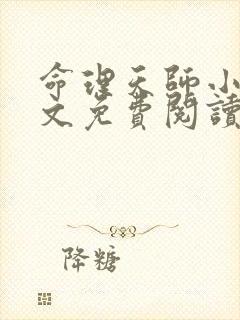 命理天師小
文免費閱讀
降糖